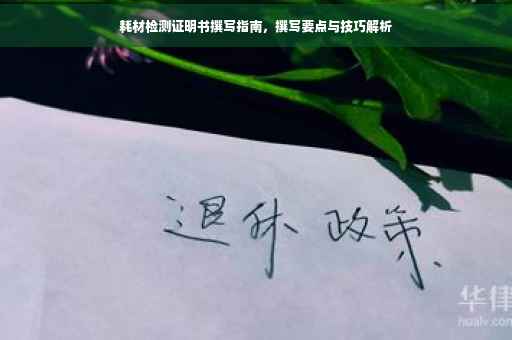 耗材检测证明书撰写指南，撰写要点与技巧解析
退休 政策
华律
hualv.com